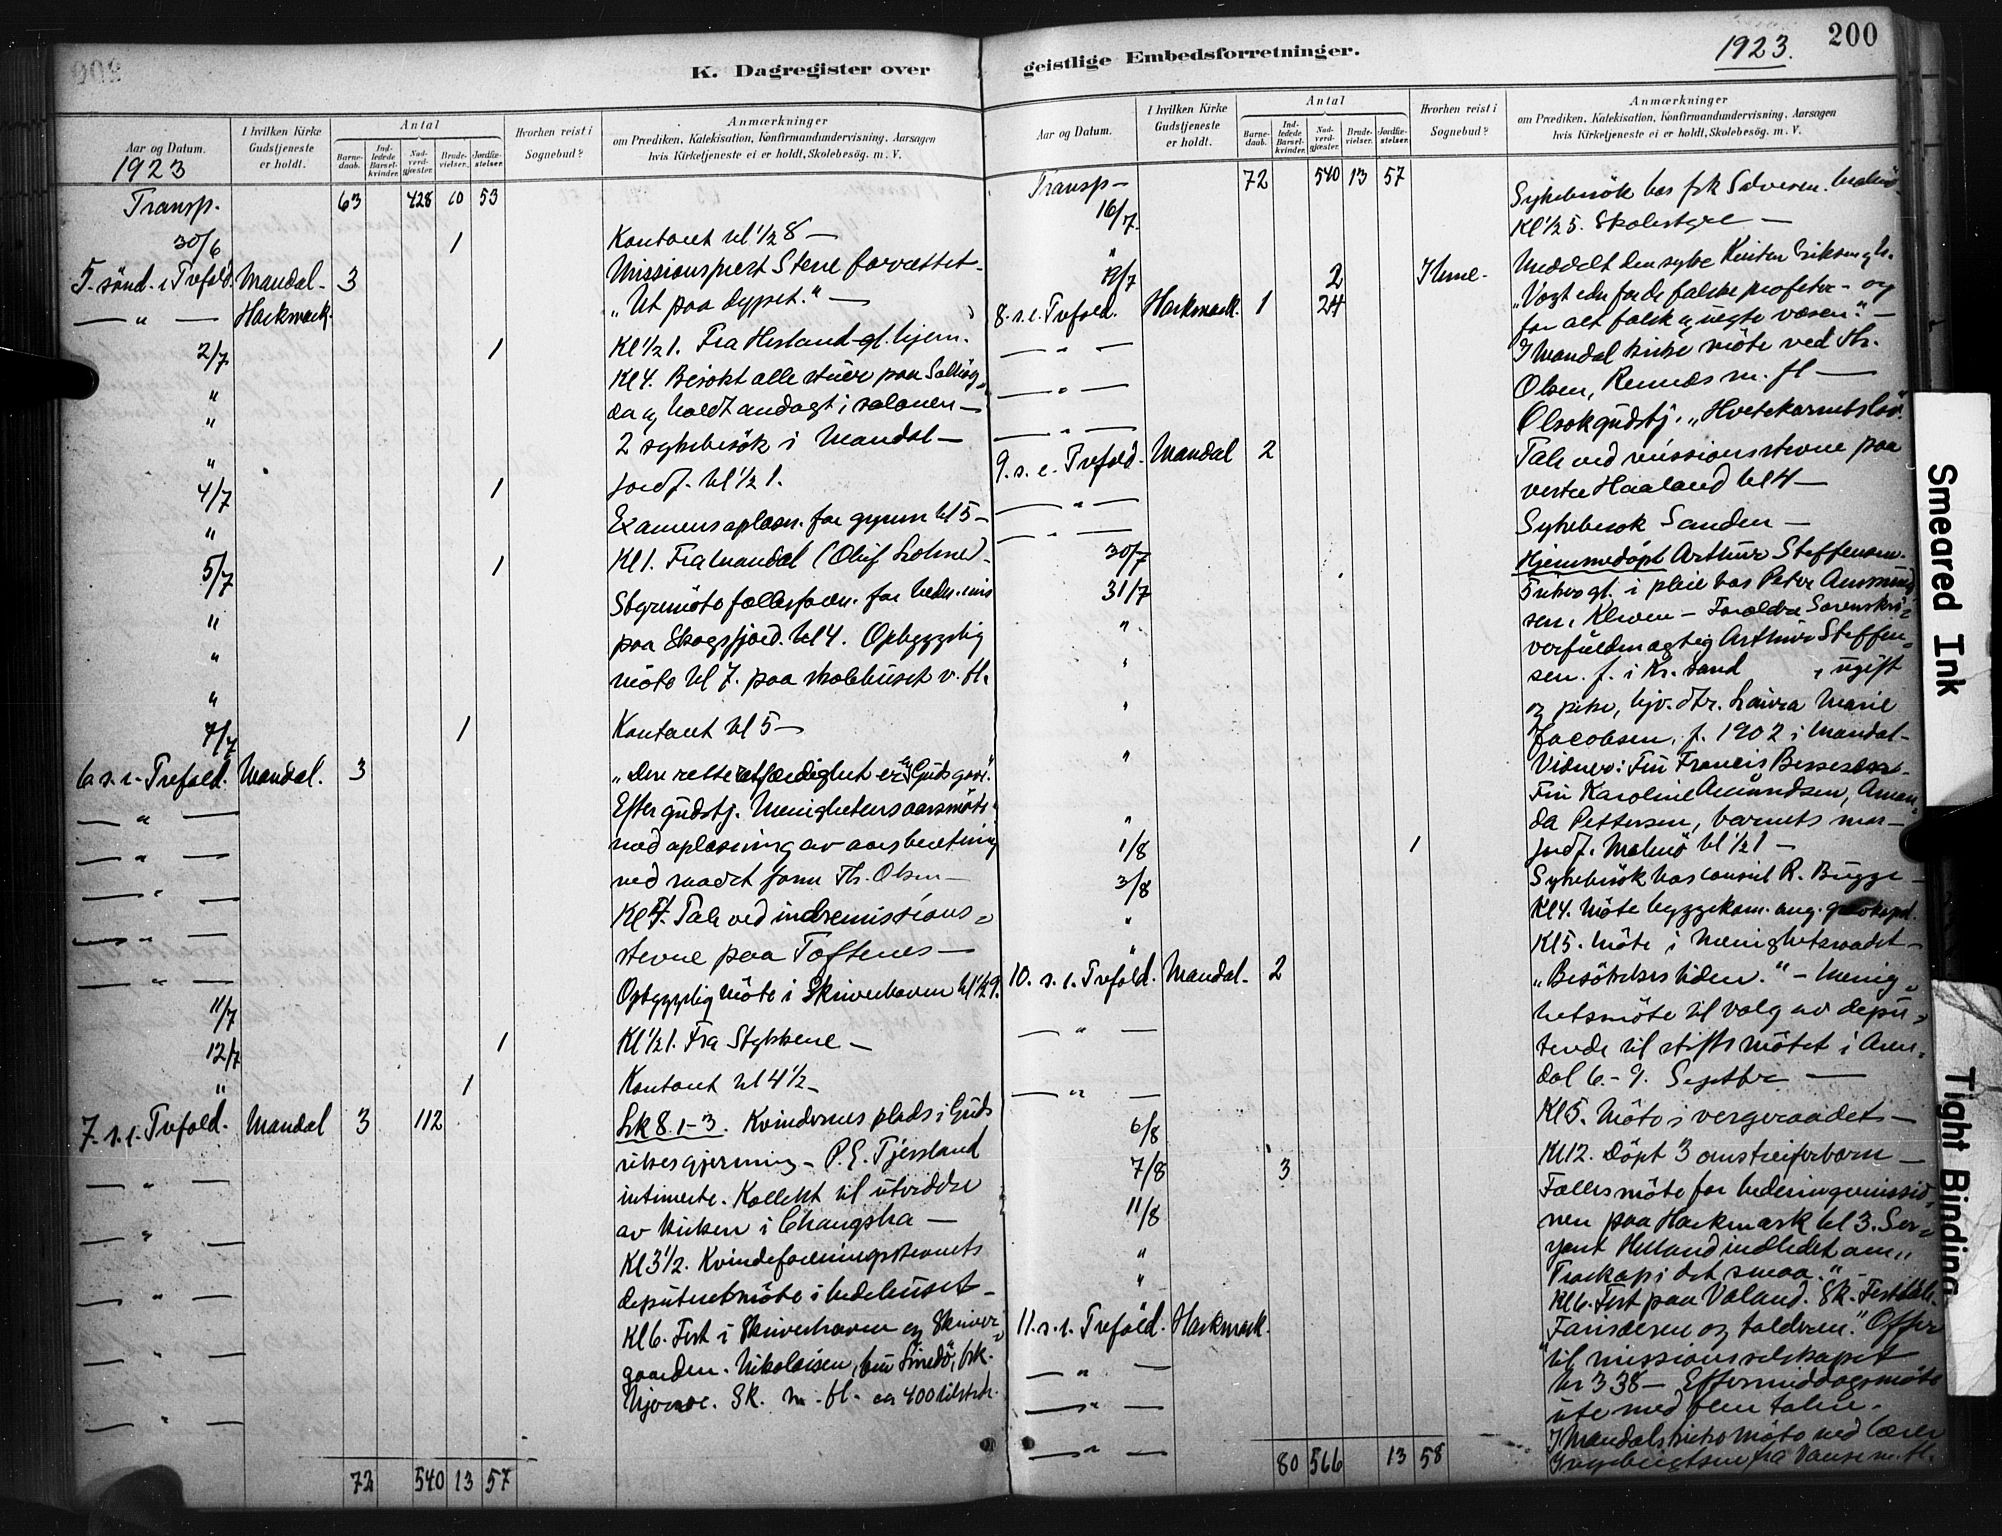 K. Dagregister over
Aar og Datum.
I hvilken Kirke Gudstjeneste er holdt.
Antal
Barnedaab.
Indledede Barselkvinder.
Nadverdgjæster.
Brudevielser.
Jordfæstelser.
Hvorhen reist i Sognebud?
Anmærkninger
om Prædiken, Katekisation, Konfirmandundervisning, Aarsagen
hvis Kirketjeneste ei er holdt, Skolebesøg. m. V.
1923
Transp. 63 428 10 53
30/6 1 Kontoret kl 1/2 8 —
5. sönd. i Trefold. Mandal - 3 Missionsprest Stene forrettet -
— " — Harkmark. "Ut paa dypet." —
2/7 1 Kl 1/2 1. Fra Hesland - gl. hjem.
" Kl 4. Besökt alle stuer paa Solhög-
" da og holdt andagt i salonen —
" 2 sykebesök i Mandal —
4/7 1 Jordf. kl 1/2 1.
" Examensoplæsn. for gymn kl 5 -
5/7 1 Kl 1. Fra Mandal (Oluf Lohne) -
" Styremöte fællesforen. for hedn. mis
" paa Skogsfjord. kl 4. Opbyggelig
" möte kl 7. paa skolehuset v. fl.
7/7 1 Kontoret kl 5 —
6. s. e. Trefold. Mandal. 3 "Den rette retfærdighet er Guds gave."
— " — Efter gudstj. Menighetens aarsmöte
— " — med oplæsning av aarsberetning
— " — ved raadets form Th. Olsen —
— " — Kl 7. Tale ved indremissions-
— " — stevne paa Toftenes —
11/7 Opbyggelig möte i Skriverhaven kl 1/2 9.
12/7 1 Kl 1/2 1. Fra Stykkene —
" 1 Kontoret kl 4 1/2 —
7. s. e. Trefold. Mandal 3 112 Lk 8. 1-3. Kvindernes plads i Guds
— " — rikes gjerning - P.E. Tjersland
— " — intimerte. Kollekt til utvidelse
— " — av kirken i Changsha —
Kl 3 1/2. Kvindeforeningsstevnets
— " — deputeretmöte i bedehuset -
Kl 6. Fest i Skriverhaven og Skriver-
— " — gaarden. Nikolaisen, fru Smedö, frk.
— " — Sk. m. fl. ca 400 tilstede.
72 540 13 57
geistlige Embedsforretninger.
1923.
200
Aar og Datum.
I hvilken Kirke Gudstjeneste er holdt.
Antal
Barnedaab.
Indledede Barselkvinder.
Nadverdgjæster.
Brudevielser.
Jordfæstelser.
Hvorhen reist i Sognebud?
Anmærkninger
om Prædiken, Katekisation, Konfirmandundervisning, Aarsagen
hvis Kirketjeneste ei er holdt, Skolebesög. m. V.
Transp - 72 540 13 57
16/7 Sykebesök hos frk Salvesen. Malmö
" Kl 1/2 5. Skolestyre —
19/7 2 Ime - Meddelt den syke Kirsten Eriksen gls.
8. s. e. Trefold. Harkmark. 1 24 "Vogt eder for de falske profeter - og
for alt falsk og uegte væsen." —
— " — I Mandal kirke möte ved Th.
— " — Olsen, Rennes m. fl —
— " — Olsokgudstj. "Hvetekornets lov."
9. s. e. Trefold. Mandal 2 Tale ved missionsstevne paa
— " — vestre Haaland kl 4 —
— " — Sykebesök Sanden —
30/7 Hjemmedöpt Arthur Steffensen.
31/7 5 uker gl. i pleie hos Peter Amund
" sen, Kleven - Forældre Sorenskri-
" verfuldmægtig Arthur Steffen-
sen. f. i Kr.sand , ugift
" og pike, hjv. dtr. Laura Marie
Jacobsen, f. 1902 i Mandal -
" Vidner: Fru Francis Bessesen -
Fru Karoline Amundsen, Aman-
" da Pettersen, barnets mor —
1/8 1 Jordf. Malmö kl 1/2 1 —
3/8 Sykebesök hos consul R. Bugge -
" Kl 4. Möte byggekom. ang.
" Kl 5. Möte i Menighetsraadet -
10. s. e. Trefold. Mandal - 2 "Besökelsestiden." - Menig-
hetsmöte til valg av depu-
— " — terede til stiftsmötet i Aren-
dal 6. - 9. Septbr —
— " — Kl 5. Möte i vergeraadet —
6/8 Kl 12. Döpt 3 omstreiferbarn —
7/8 3 Fællesmöte for hedningemissio-
11/8 nen paa Harkmark kl 3. Ser-
" gent Helland indledet om "
" Troskap i det smaa." —
Kl 6. Fest paa Valand. Sk. Festtale.
11. s. e. Trefold. Harkmark. "Farisæeren og tolderen." Offer
til missionsselskapet
— " — kr 338 - Eftermiddagsmöte
— " — ute med flere talere.
— " — I Mandals kirke möte ved lærer
Ingebrigtsen fra Vanse m. fl.
80 566 13 58
Smeared Ink
Tight Binding